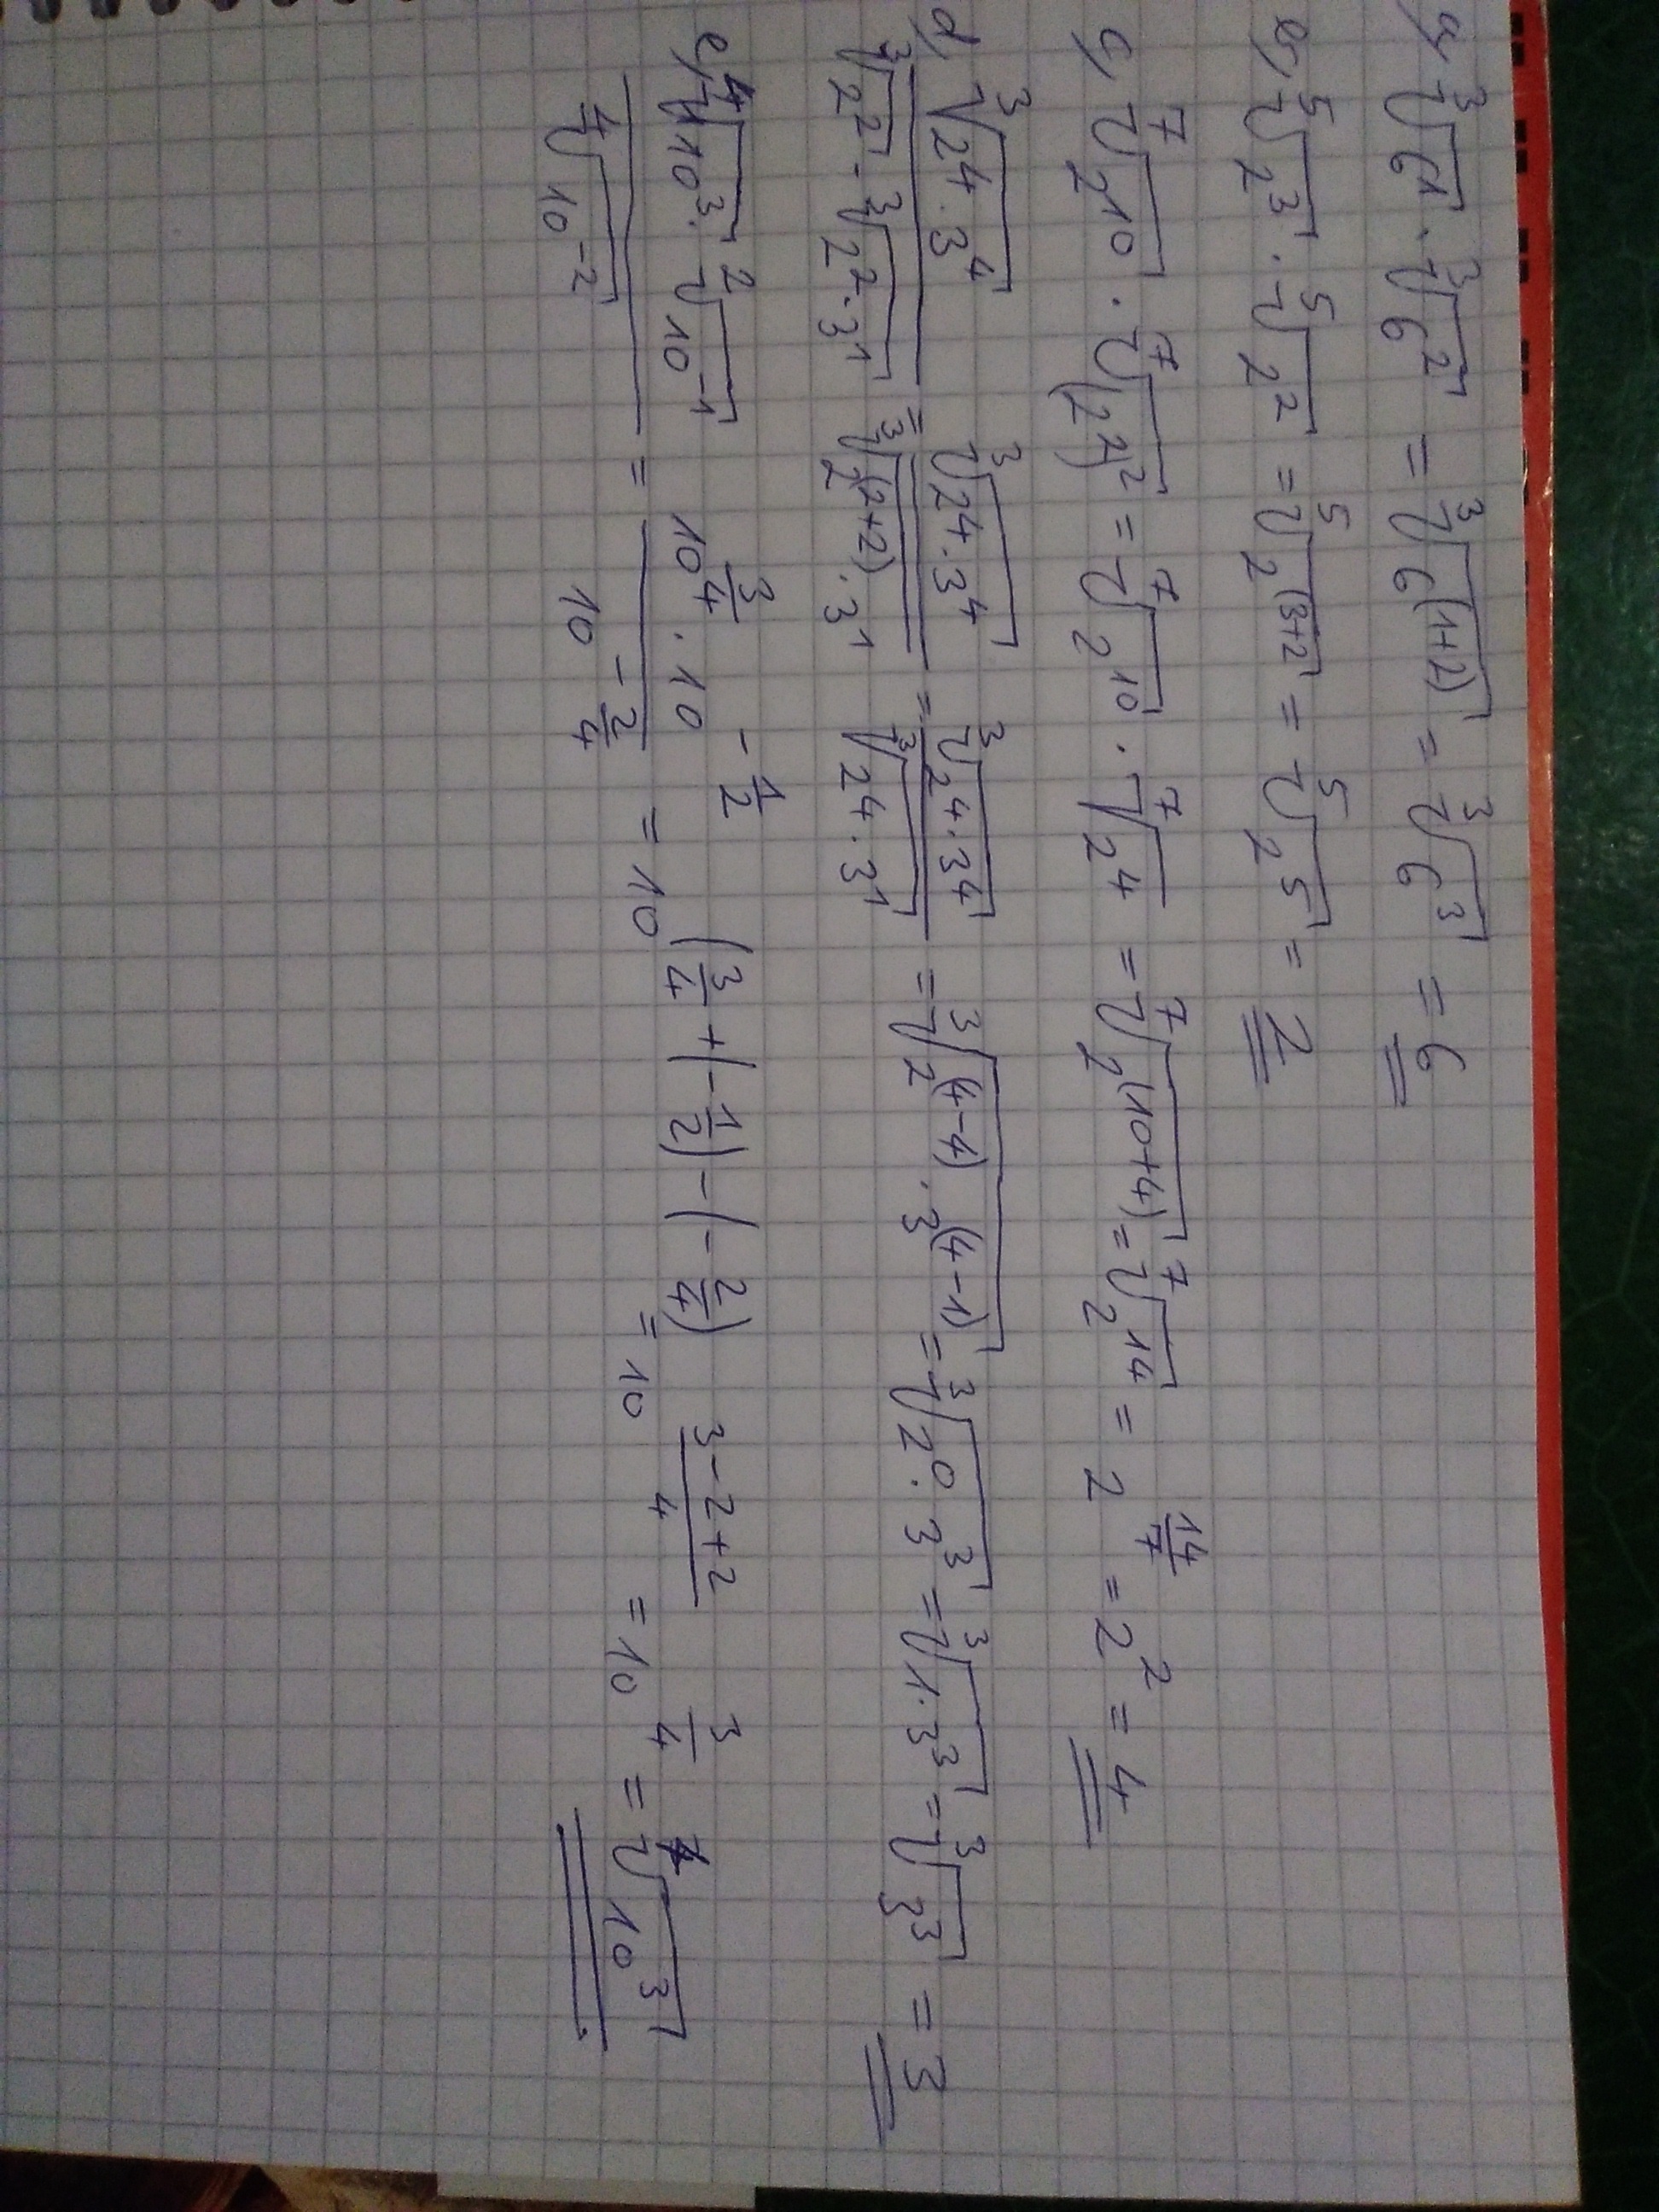 a, ³√6¹ · ³√6² = ³√6⁽¹⁺²⁾ = ³√6³ = 6
b, ⁵√2³ · ⁵√2² = ⁵√2⁽³⁺²⁾ = ⁵√2⁵ = 2
c, ⁷√2¹⁰ · ⁷√(2²)² = ⁷√2¹⁰ · ⁷√2⁴ = ⁷√2⁽¹⁰⁺⁴⁾ = ⁷√2¹⁴ = 2^(14/7) = 2² = 4
d, ³√2⁴·3⁴ / ³√2² · ³√2²·3¹ = ³√2⁴·3⁴ / ³√2⁽²⁺²⁾·3¹ = ³√2⁴·3⁴ / ³√2⁴·3¹ = ³√2⁽⁴⁻⁴⁾·3⁽⁴⁻¹⁾ = ³√2⁰·3³ = ³√1·3³ = ³√3³ = 3
e, ⁴√10³ · ²√10⁻¹ / ⁴√10⁻² = 10^(3/4) · 10^(-1/2) / 10^(-2/4) = 10^(3/4 + (-1/2) - (-2/4)) = 10^((3-2+2)/4) = 10^(3/4) = ⁴√10³